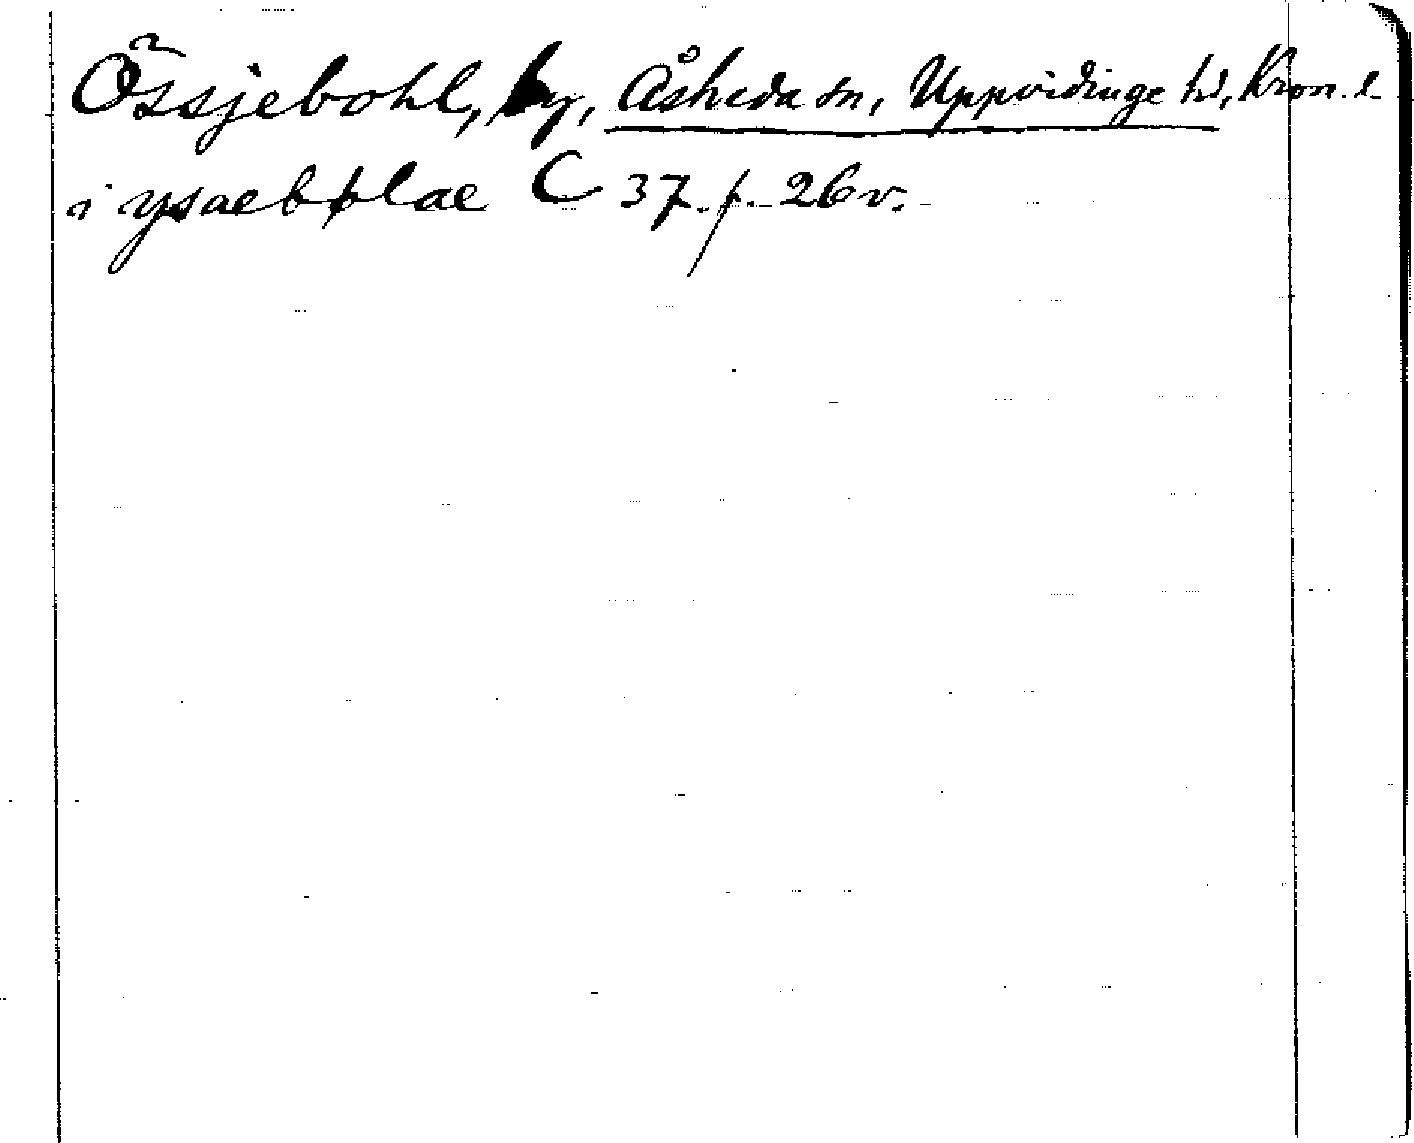 Össjebohl, by, Åsheda sn, Uppvidinge hd, Kron. l.
i ysaebblae C 37. f. 26v.